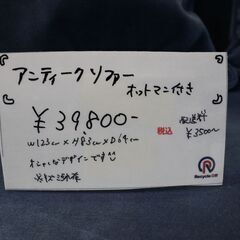 アンティークソファー
オットマン付き
¥39800-
税込
配送料
¥3500〜
W123cm × H83cm × D64cm
オシャレなデザインです
Recycle Off